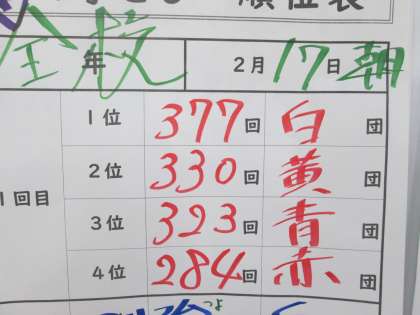 順位表
全校
年 2月17日 朝
1回目
1位 377回 白団
2位 330回 黄団
3位 323回 青団
4位 284回 赤団